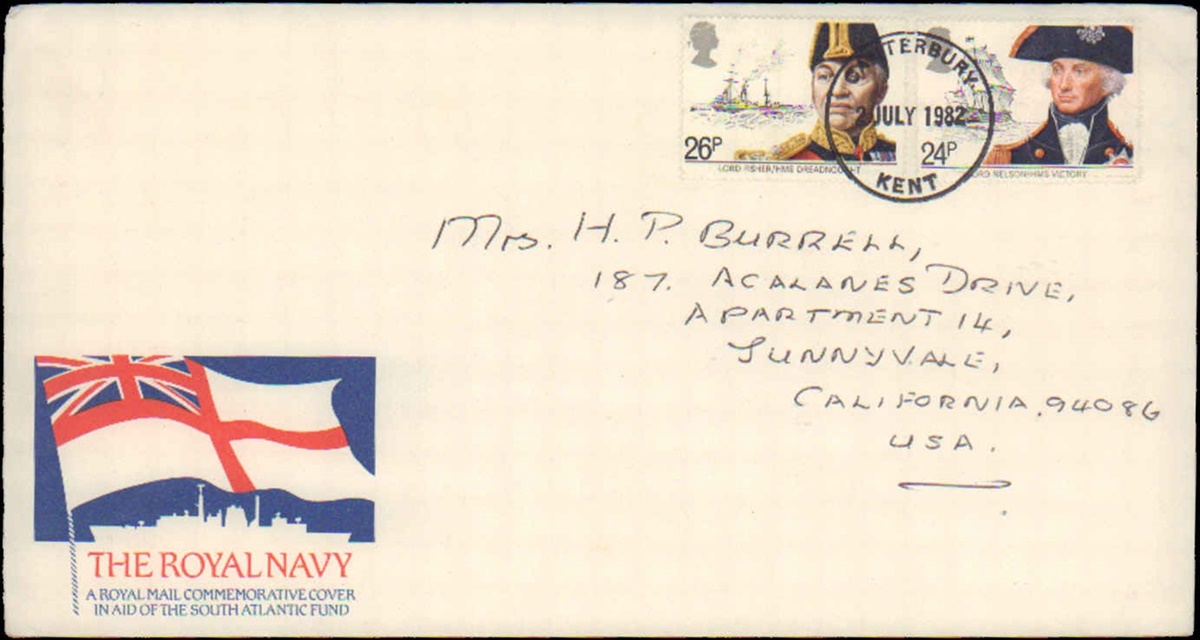 26P
LORD FISHER/HMS DREADNOUGHT
24P
LORD NELSON/HMS VICTORY
CANTERBURY
2 JULY 1982
KENT
Mrs. H. P. BURRELL,
187. ACALANES DRIVE,
APARTMENT 14,
SUNNYVALE,
CALIFORNIA, 94086
USA.
THE ROYAL NAVY
A ROYAL MAIL COMMEMORATIVE COVER
IN AID OF THE SOUTH ATLANTIC FUND